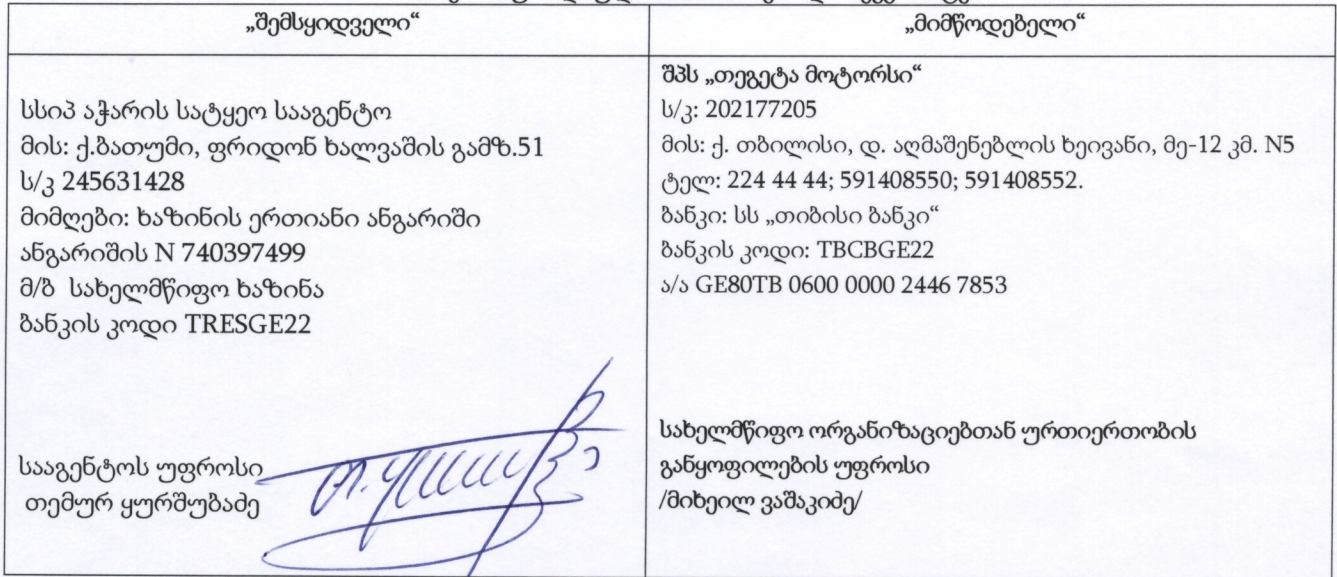 „შემსყიდველი“
სსიპ აჭარის სატყეო სააგენტო
მის: ქ.ბათუმი, ფრიდონ ხალვაშის გამზ.51
ს/კ 245631428
მიმღები: ხაზინის ერთიანი ანგარიში
ანგარიშის N 740397499
მ/ბ სახელმწიფო ხაზინა
ბანკის კოდი TRESGE22
სააგენტოს უფროსი
თემურ ყურშუბაძე
„მიმწოდებელი“
შპს „თეგეტა მოტორსი“
ს/კ: 202177205
მის: ქ. თბილისი, დ. აღმაშენებლის ხეივანი, მე-12 კმ. N5
ტელ: 224 44 44; 591408550; 591408552.
ბანკი: სს „თიბისი ბანკი“
ბანკის კოდი: TBCBGE22
ა/ა GE80TB 0600 0000 2446 7853
სახელმწიფო ორგანიზაციებთან ურთიერთობის
განყოფილების უფროსი
/მიხეილ ვაშაკიძე/